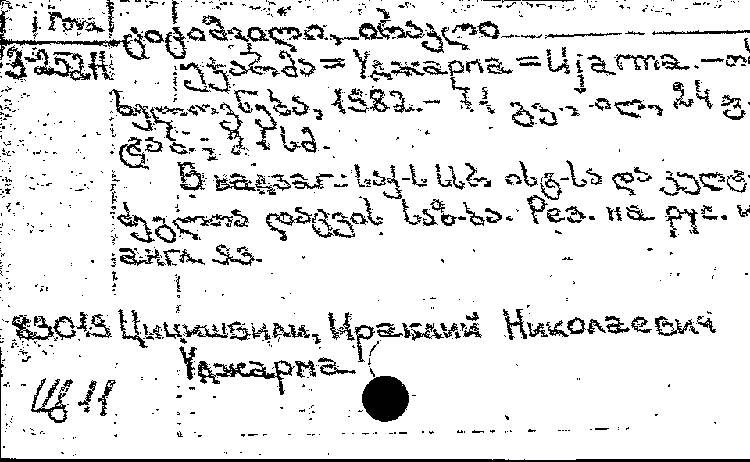 ციციშვილი, ირაკლი
უჯარმა = Уджарма = Ujarma. – თბ
ხელოვნება, 1982. – 71 გვ., ილ., 24 ფ
ტაბ.; 21 სმ.
В надзаг.: საქ-ს სსრ ისტ-სა და კულტ
ძეგლთა დაცვის საზ-ბა. Рез. на рус. и
англ. яз.
83019 Цицишвили, Ираклий Николаевич
Уджарма
Щ 11